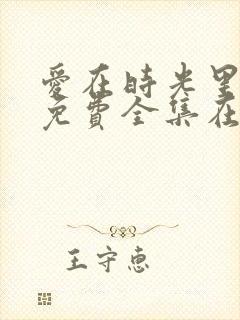 愛在時光里
免費全集在
王守惠